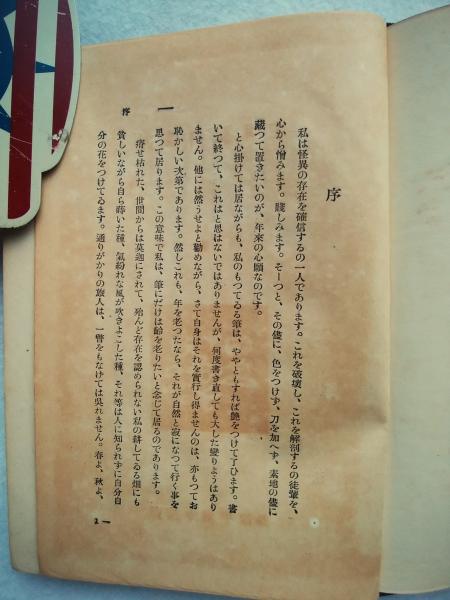 序
私は怪異の存在を確信するの一人であります。これを破壊し、これを解剖するの徒輩を、
心から憎みます。賤しみます。そーつと、その儘に、色をつけず、刀を加へず、素地の儘に
藏つて置きたいのが、年來の心願なのです。
と心掛けては居ながらも、私のもつてゐる筆は、ややともすれば艶をつけて了ひます。書
いて終つて、これはと思はないではありませんが、何度書き直しても大した變りようはあり
ません。他には然うせよと勸めながら、さて自身はそれを實行し得ませんのは、亦もつてお
恥かしい次第であります。然しこれも、年を老つたなら、それが自然と寂になつて行く事を
思つて居ります。この意味で私は、筆にだけは齢を老りたいと念じて居るのであります。
瘠せ枯れた、世間からは莫迦にされて、殆んど存在を認められない私の耕してゐる畑にも
貧しいながら自ら蒔いた種、氣紛れな風が吹きよこした種、それ等は人に知られずに自分自
分の花をつけてゐます。通りがかりの旅人は、一瞥をもなげては呉れません。春よ、秋よ、
序
一
2 一